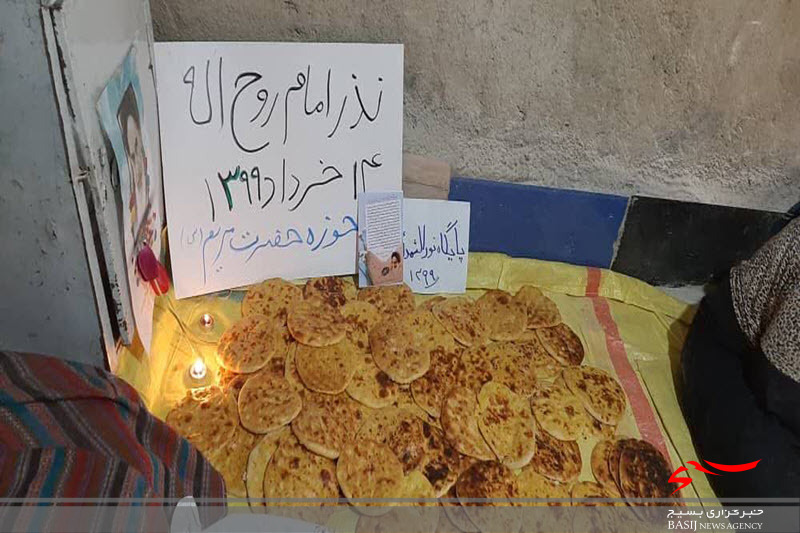 نذر امام روح اله
۱۴ خرداد ۱۳۹۹
حوزه حضرت مریم (س)
پایگاه نورالشهدا
۱۳۹۹
خبرگزاری بسیج
BASIJ NEWS AGENCY